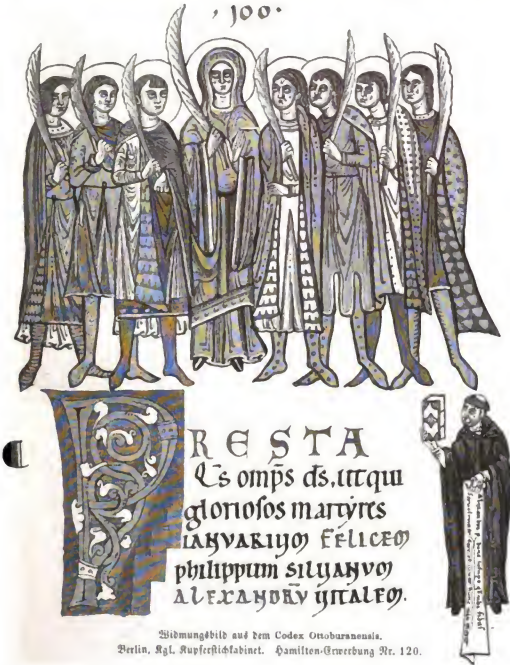 · 100 ·
PRESTA
Q̄s omp̄s d̄s, ut qui
glorioſos martyres
IANVARIUM FELICEM
philippum SILVANUM
ALEXANDRŪ VITALEM.
Widmungsbild aus dem Codex Ottoburanensis.
Berlin, Kgl. Kupferstichkabinet. Hamilton-Erwerbung Nr. 120.